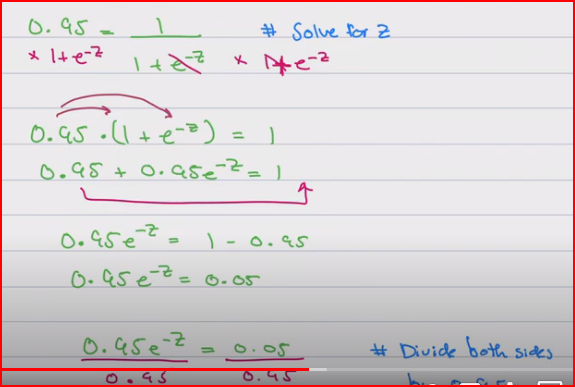 0.95 = 1 / 1 + e^-z # Solve for z
× 1+e^-z × 1+e^-z
0.95 · (1 + e^-z) = 1
0.95 + 0.95e^-z = 1
0.95e^-z = 1 - 0.95
0.95e^-z = 0.05
0.95e^-z / 0.95 = 0.05 / 0.95 # Divide both sides
by